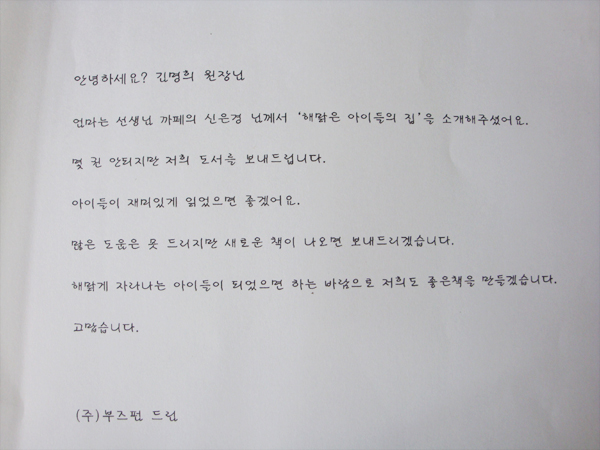 안녕하세요? 김명희 원장님
엄마는 선생님 까페의 신은경 님께서 '해맑은 아이들의 집'을 소개해주셨어요.
몇 권 안되지만 저희 도서를 보내드립니다.
아이들이 재미있게 읽었으면 좋겠어요.
많은 도움은 못 드리지만 새로운 책이 나오면 보내드리겠습니다.
해맑게 자라나는 아이들이 되었으면 하는 바람으로 저희도 좋은책을 만들겠습니다.
고맙습니다.
(주)부즈펌 드림